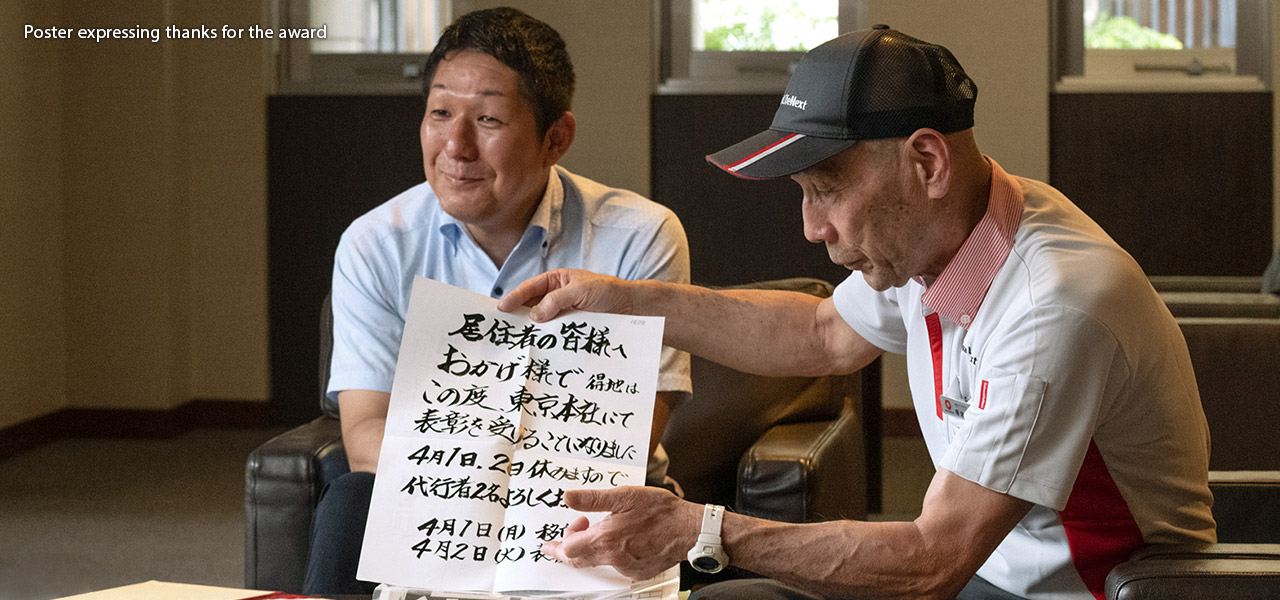 Poster expressing thanks for the award
居住者の皆様へ
おかげ様で 得地は
この度、東京本社にて
表彰を受けることになりました
4月1日、2日休みますので
代行者2名よろしくお
4月1日(月)移
4月2日(火)表